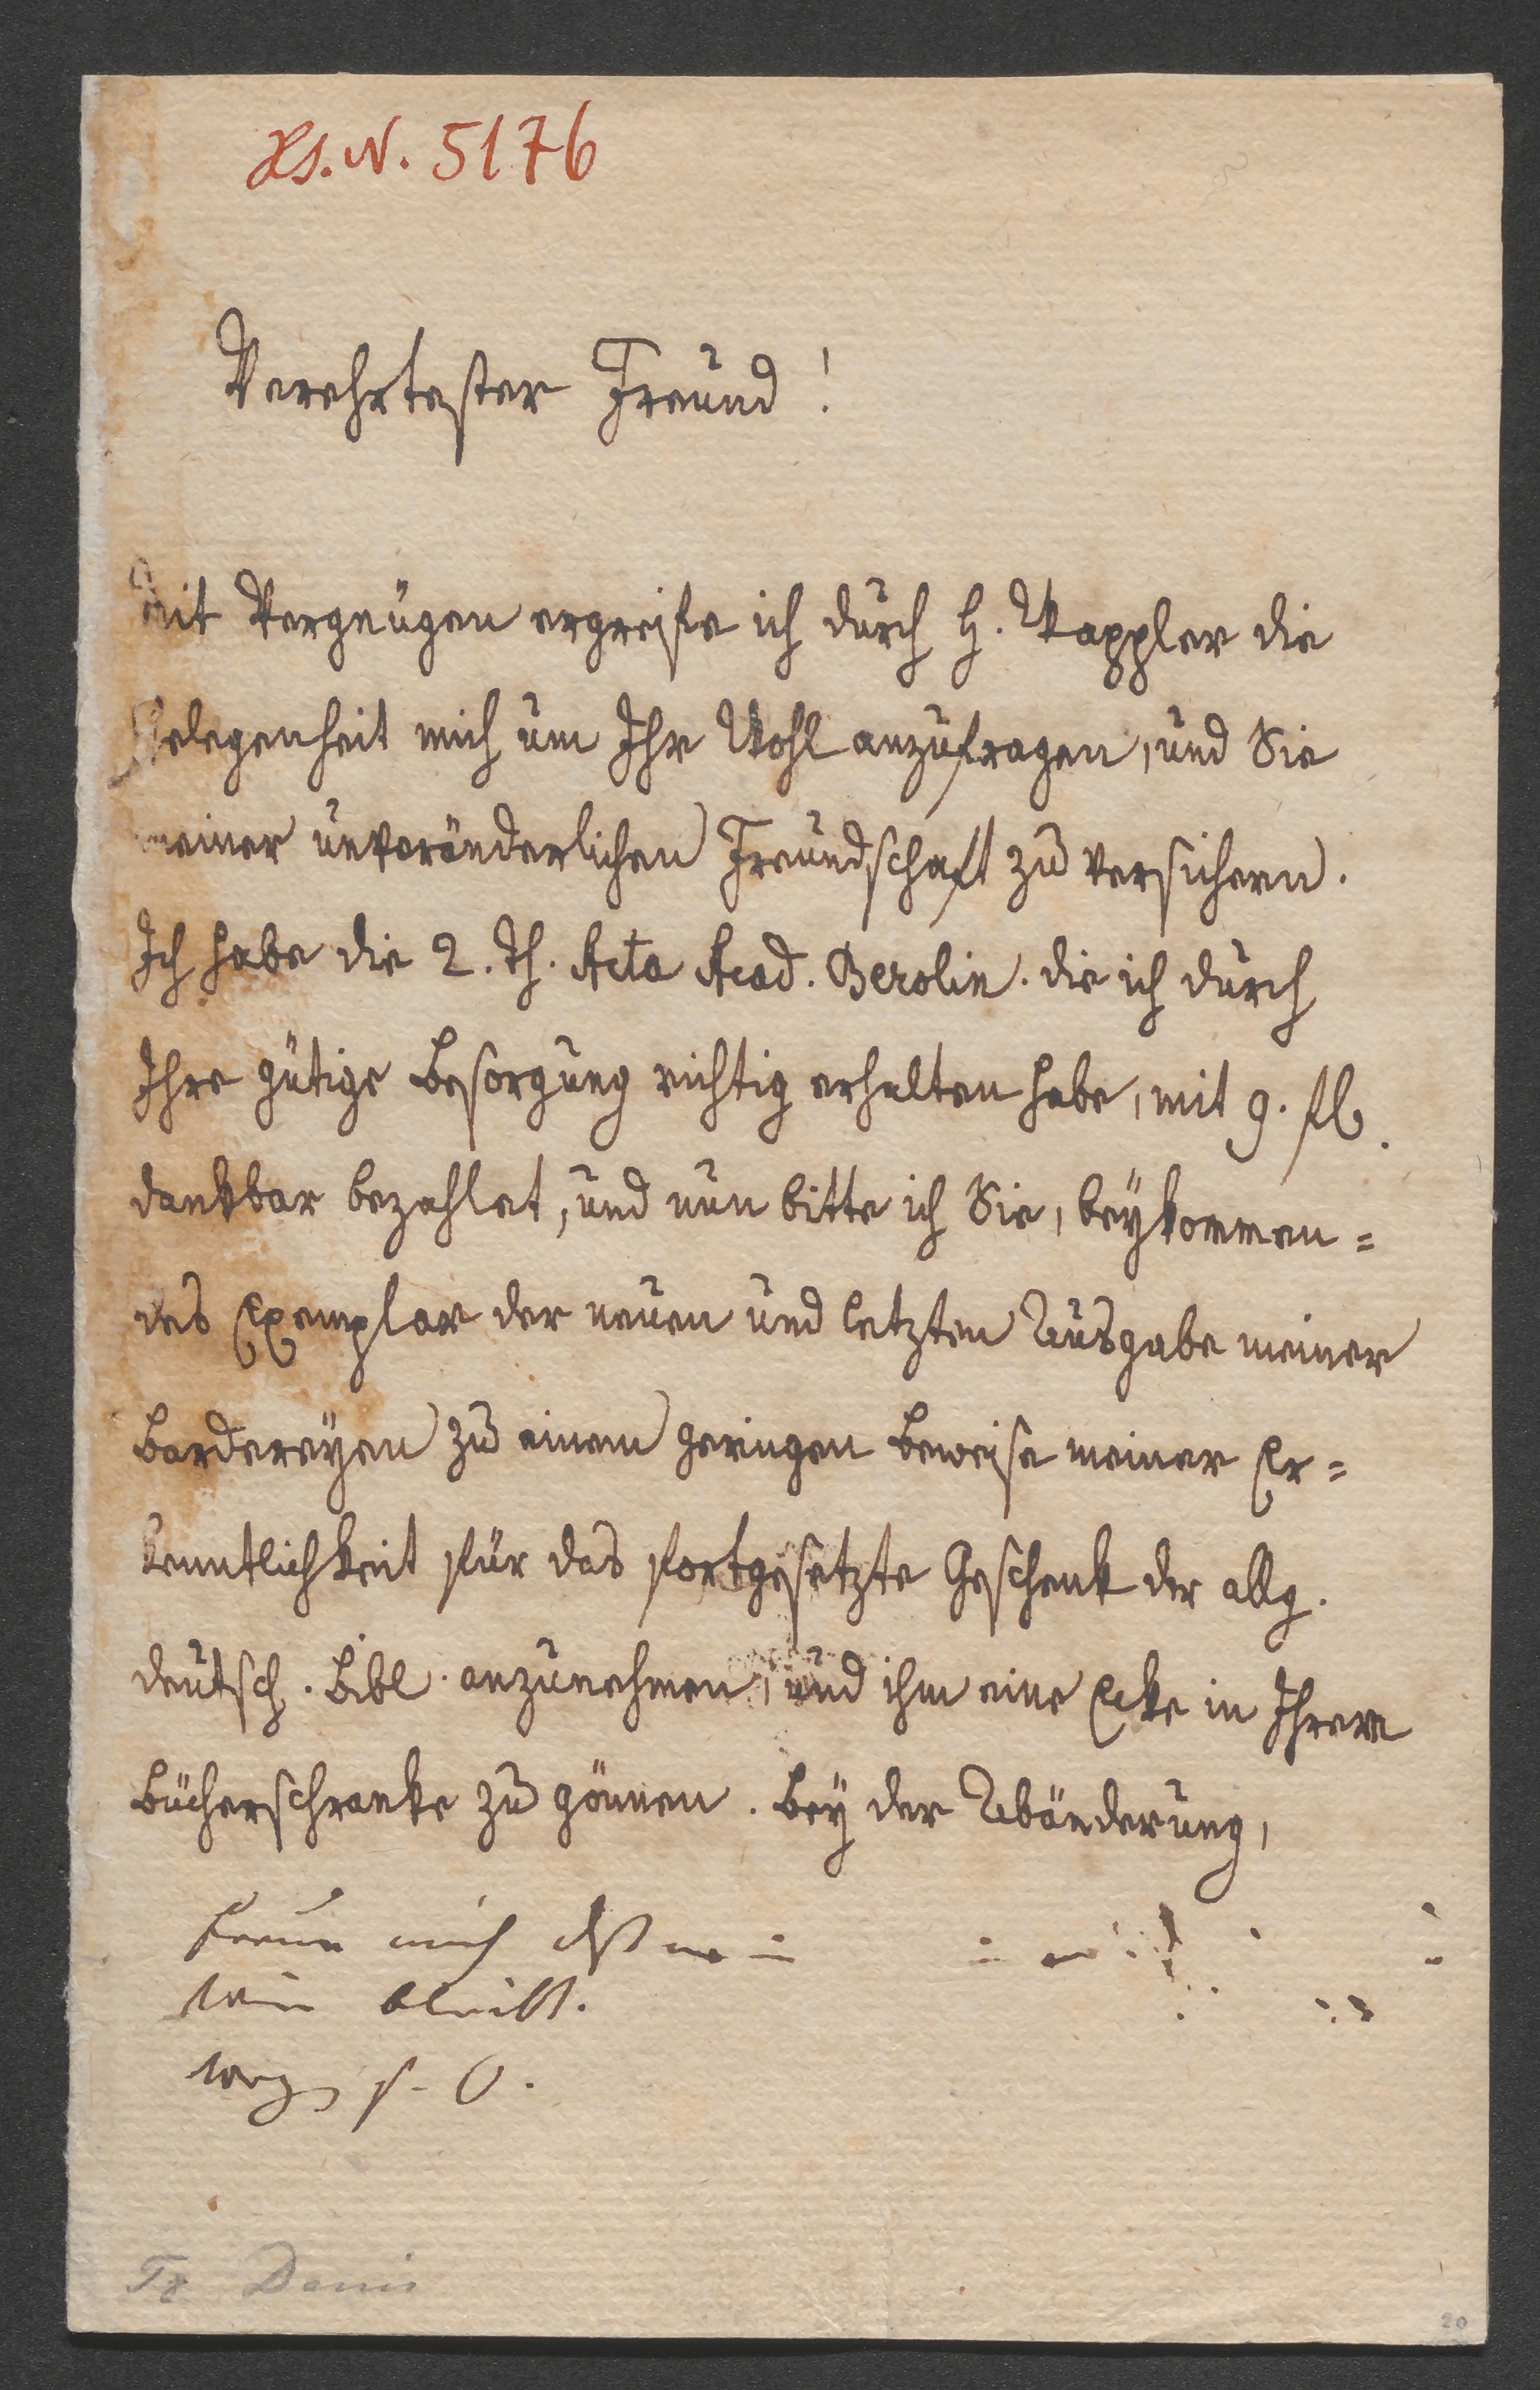 Hs. N. 5176
Verehrtester Freund!
Mit Vergnügen ergreife ich durch H. Wappler die
Gelegenheit mich um Ihr Wohl anzufragen, und Sie
meiner unveränderlichen Freundschaft zu versichern.
Ich habe die 2. Th. Acta Acad. Berolin. die ich durch
Ihre gütige Besorgung richtig erhalten habe, mit 9. fl.
dankbar bezahlet, und nun bitte ich Sie, beykommen=
des Exemplar der neuen und letzten Ausgabe meiner
Bardereyen zu einem geringen Beweise meiner Er=
kenntlichkeit für das fortgesetzte Geschenk der allg.
deutsch. Bibl. anzunehmen, und ihm eine Ecke in Ihrem
Bücherschranke zu gönnen. Bey der Abänderung,
freue mich
bleibt.
Denis
20